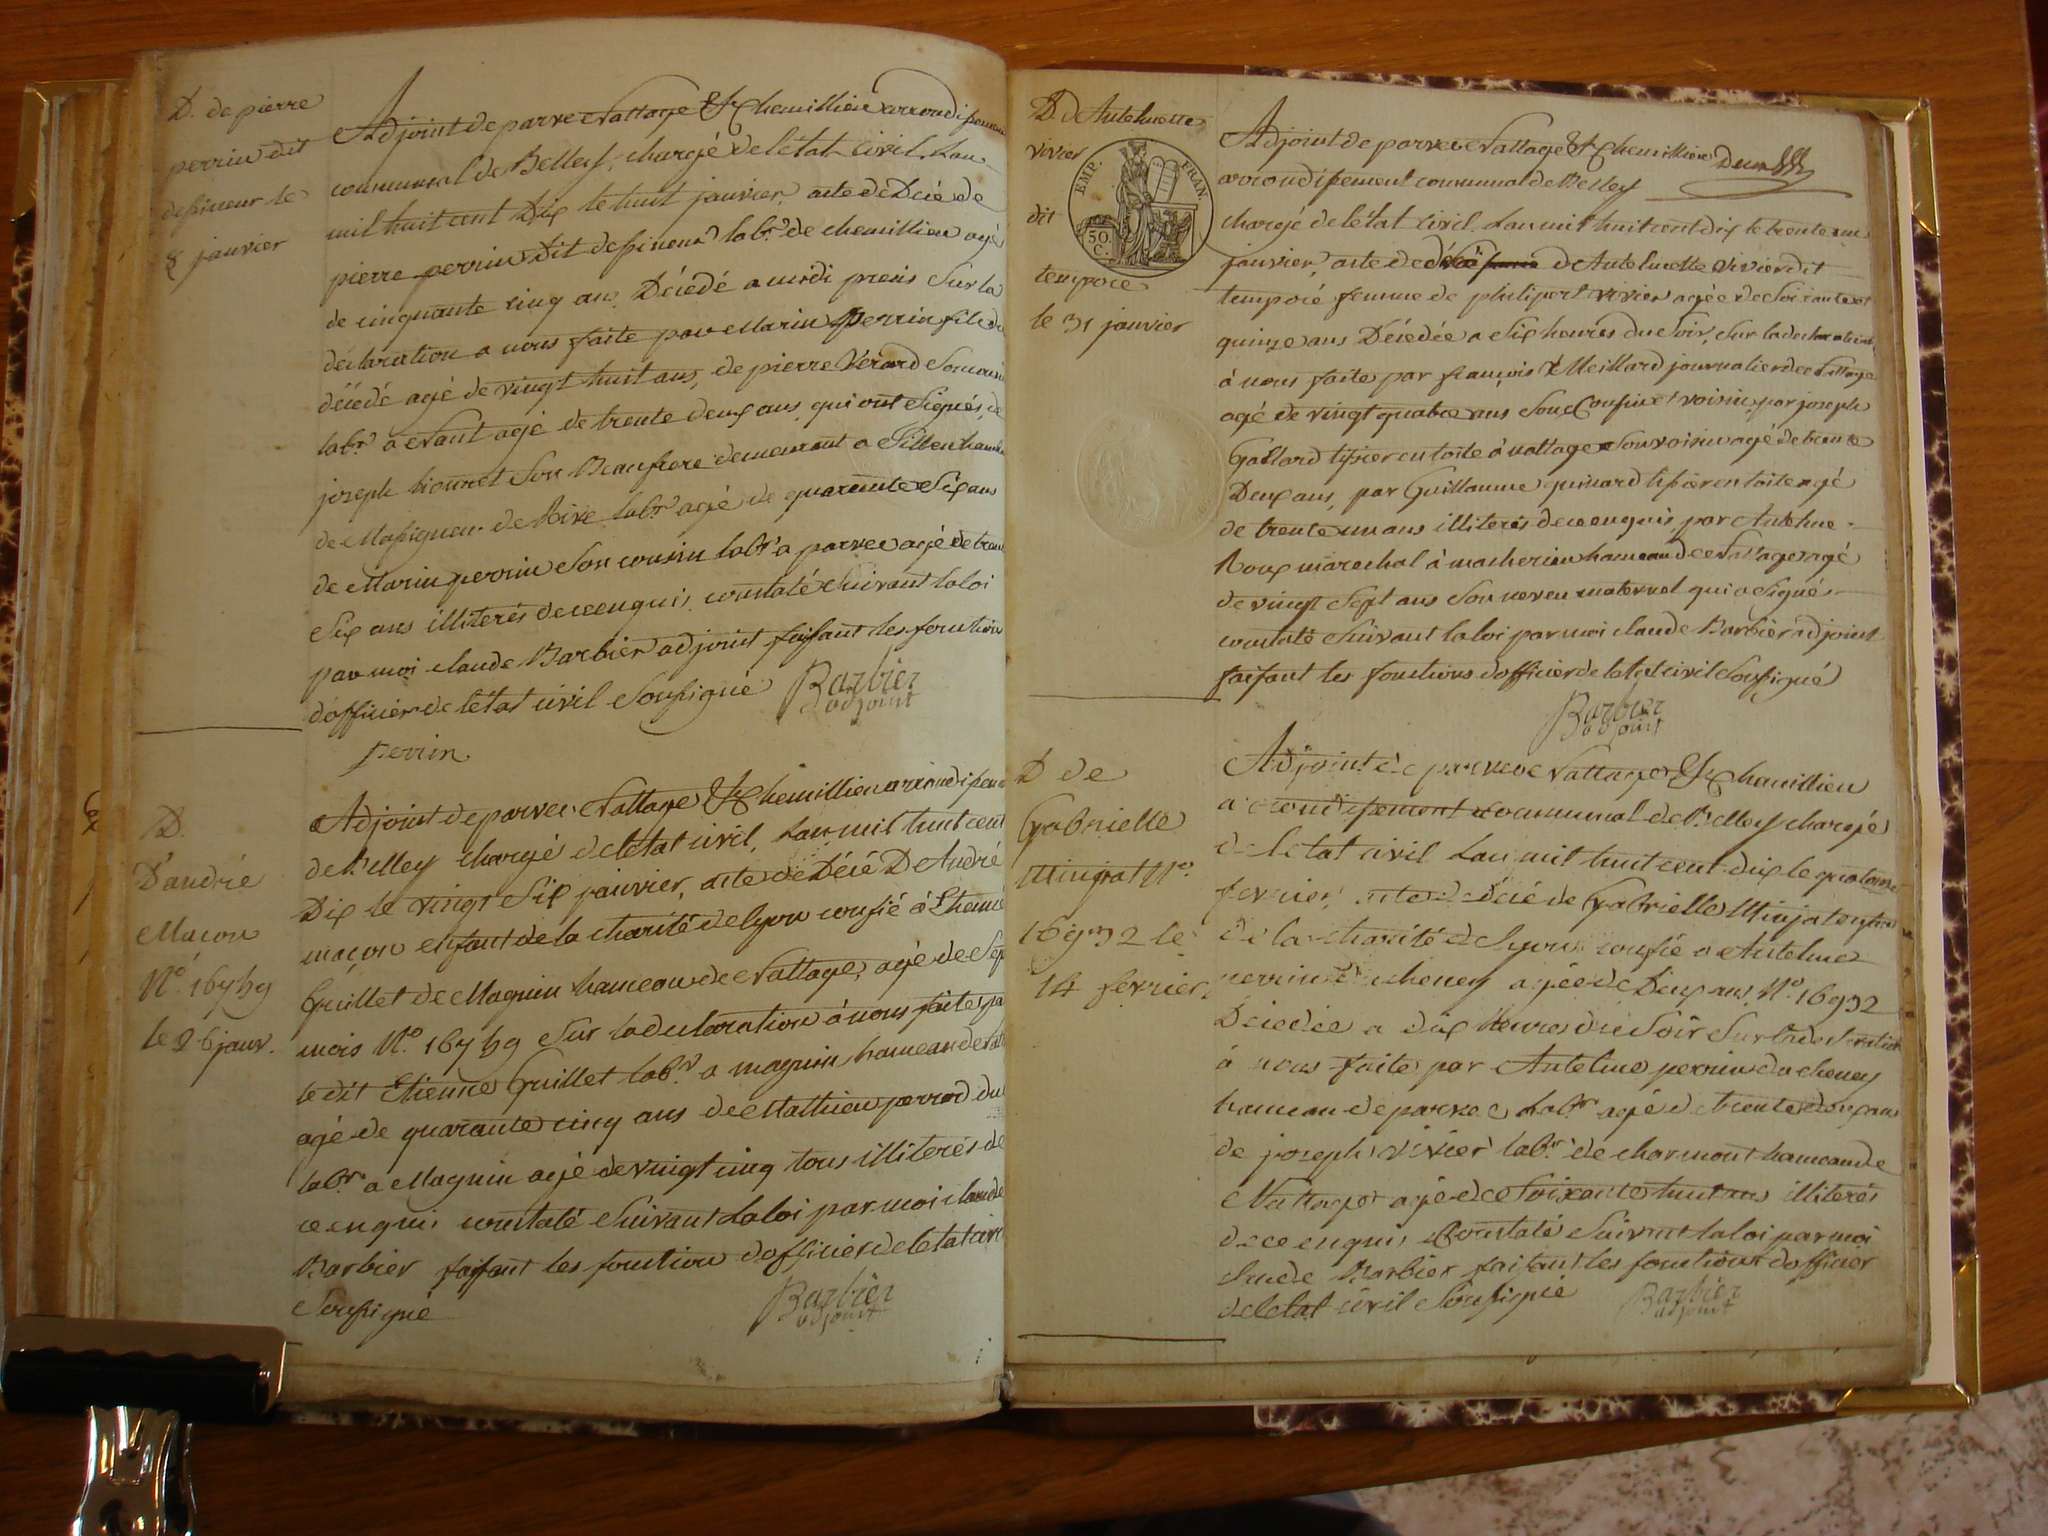 D. de pierre
perrin dit
dessineur le
8 janvier
Adjoint de parve Nattage & Chemillieu arrondissement
communal de Belley, chargé de létat civil. Lan
mil huit cent Dix le huit janvier, acte de Décé de
pierre perrin dit dessineur labr. de chemillieu agé
de cinquante cinq ans Décédé a midi précis Sur la
déclaration a nous faite par Marin Perrin fils du
décédé agé de vingt huit ans, de pierre Vérard Son
labr. a Nant agé de trente deux ans qui ont Signés, de
joseph Son Beaufrere demeurant a
de Massigneu de Rive labr. agé de quarante Six ans
de Marin perrin Son cousin labr. a parve agé de trente
Six ans illiterés de ce enquis, constaté Suivant la loi
par moi claude Barbier adjoint faisant les fonctions
dofficier de létat civil Soussigné
Barbier
adjoint
Perrin
D.
D'andrée
Macon
No. 16789
le 26 janv.
Adjoint de parve Nattage & Chemillieu arrondissement
de Belley chargé de létat civil, Lan mil huit cent
Dix le vingt Six janvier, acte de Décé D'André
macon enfant de la charité de lyon confié à Etienne
Guillet de Magnin hameau de Nattage, agé de Sept
mois No. 16789 Sur la déclaration à nous faite par
le dit Etienne Guillet labr. a magnin hameau de
agé de quarante cinq ans de Mathieu perrod du
labr. a Magnin agé de vingt cinq tous illiterés de
ce enquis constaté Suivant la loi par moi claude
Barbier faisant les fonction dofficier de létat civil
Soussigné
Barbier
adjoint
D. dAntelmette
vivier
dit
tempoié
le 31 janvier
EMP. FRAN.
50.
C.
Adjoint de parve Nattage & Chemillieu
arrondissement communal de Belley
chargé de létat civil. Lan mil huit cent dix le trente un
janvier, acte de décé dAntelmette Vivier dit
tempoié femme de philipert vivier agée de Soixante et
quinze ans Décédée a Six heures du Soir, Sur la declaration
à nous faite par françois Meillard journalier de Nattage
agé de vingt quatre ans Son Cousin et voisin, par joseph
Gallard tissier en toile à nattage Son voisin agé de trente
Deux ans, par Guillaume quinard tissier en toile agé
de trente un ans illiterés de ce enquis, par Antelme
Roux marechal à macherieu hameau de Nattage agé
de vingt Sept ans Son neveu maternel qui a Signé
constaté Suivant la loi par moi claude Barbier adjoint
faisant les fonctions dofficier de létat civil Soussigné
Barbier
adjoint
D de
Gabrielle
Minjat No.
16932 le
14 fevrier.
Adjoint de parve Nattage & Chemillieu
arrondissement communal de Belley chargé
de létat civil. Lan mil huit cent dix le quatorze
fevrier, acte de décé de Gabrielle Minjat enfant
de la charité de lyon confié a Antelme
perrin de cheney agée de Deux ans, No. 16932
Décédée a dix heures du Soir Sur la declaration
à nous faite par Antelme perrin du cheney
hameau de parve labr. agé de trente deux ans
de joseph vivier labr. de charmont hameau de
Nattage agé de Soixante huit ans illiterés
de ce enquis, Constaté Suivant la loi par moi
claude Barbier faisant les fonctions dofficier
de létat civil Soussigné
Barbier
adjoint